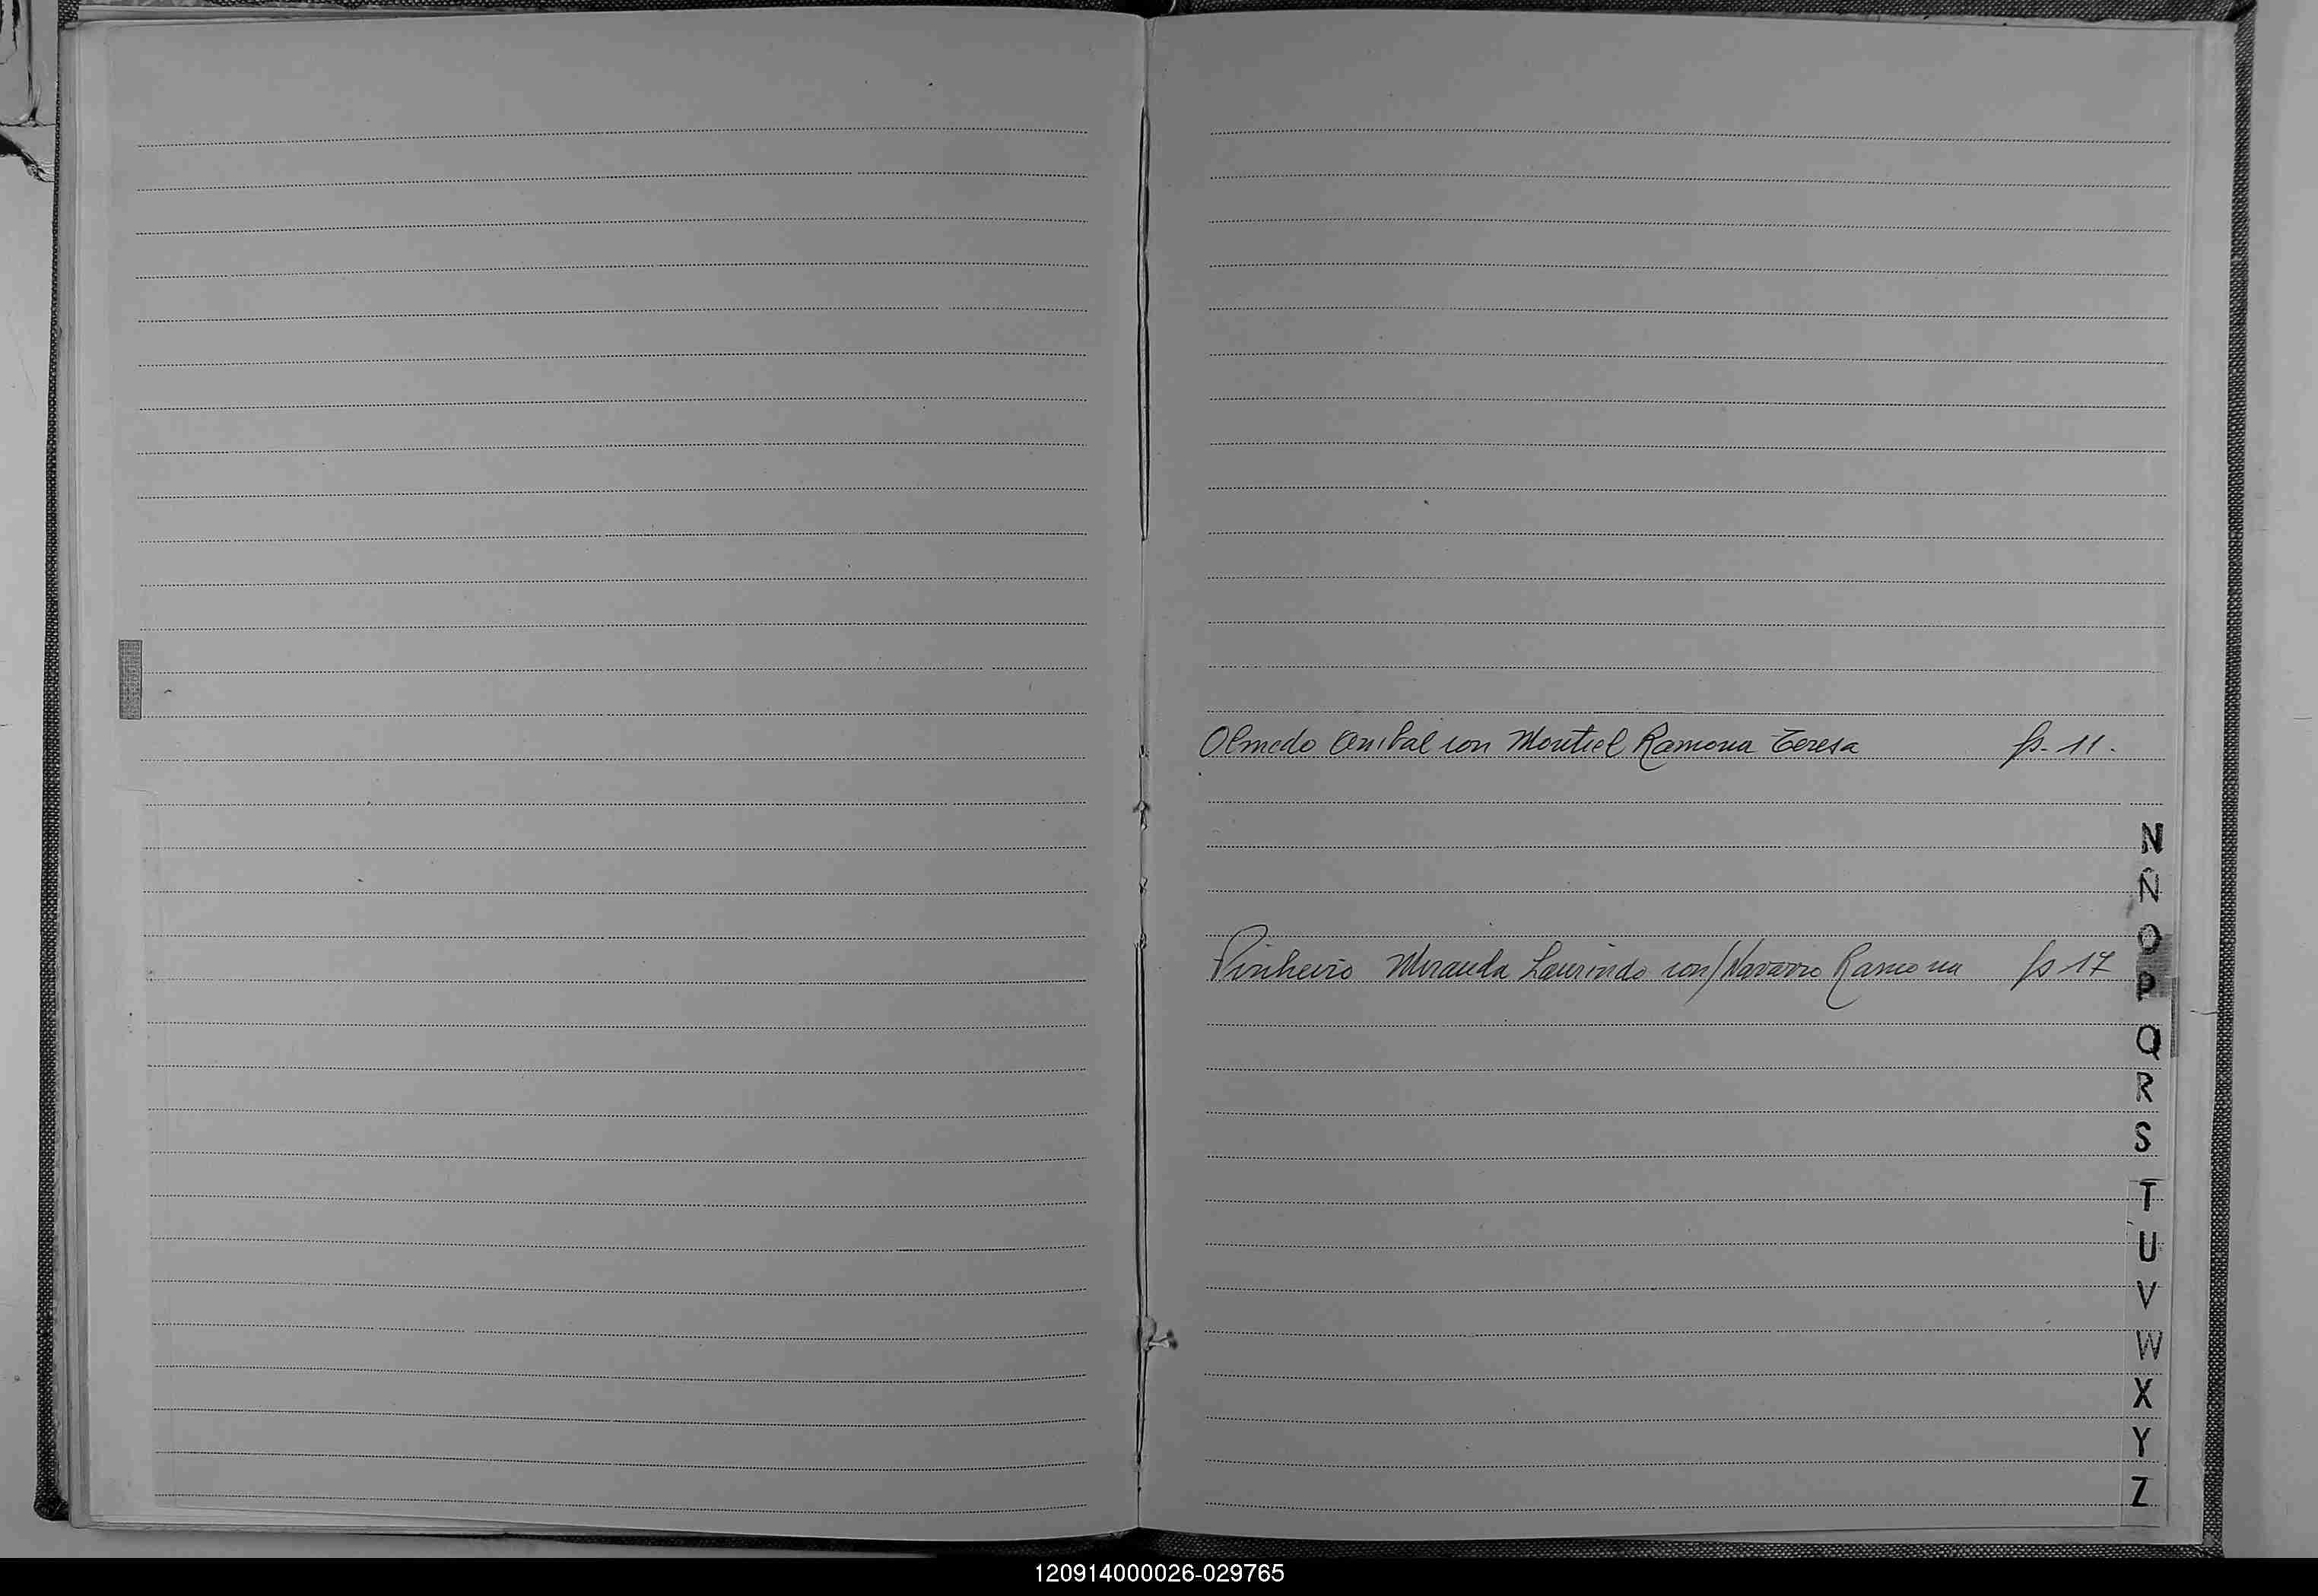 Olmedo Anibal con Montiel Ramona Teresa fs. 11.
N
Ñ
O
Pinheiro Miranda Laurindo con/Navarro Ramona fs 17
P
Q
R
S
T
U
V
W
X
Y
Z
120914000026-029765